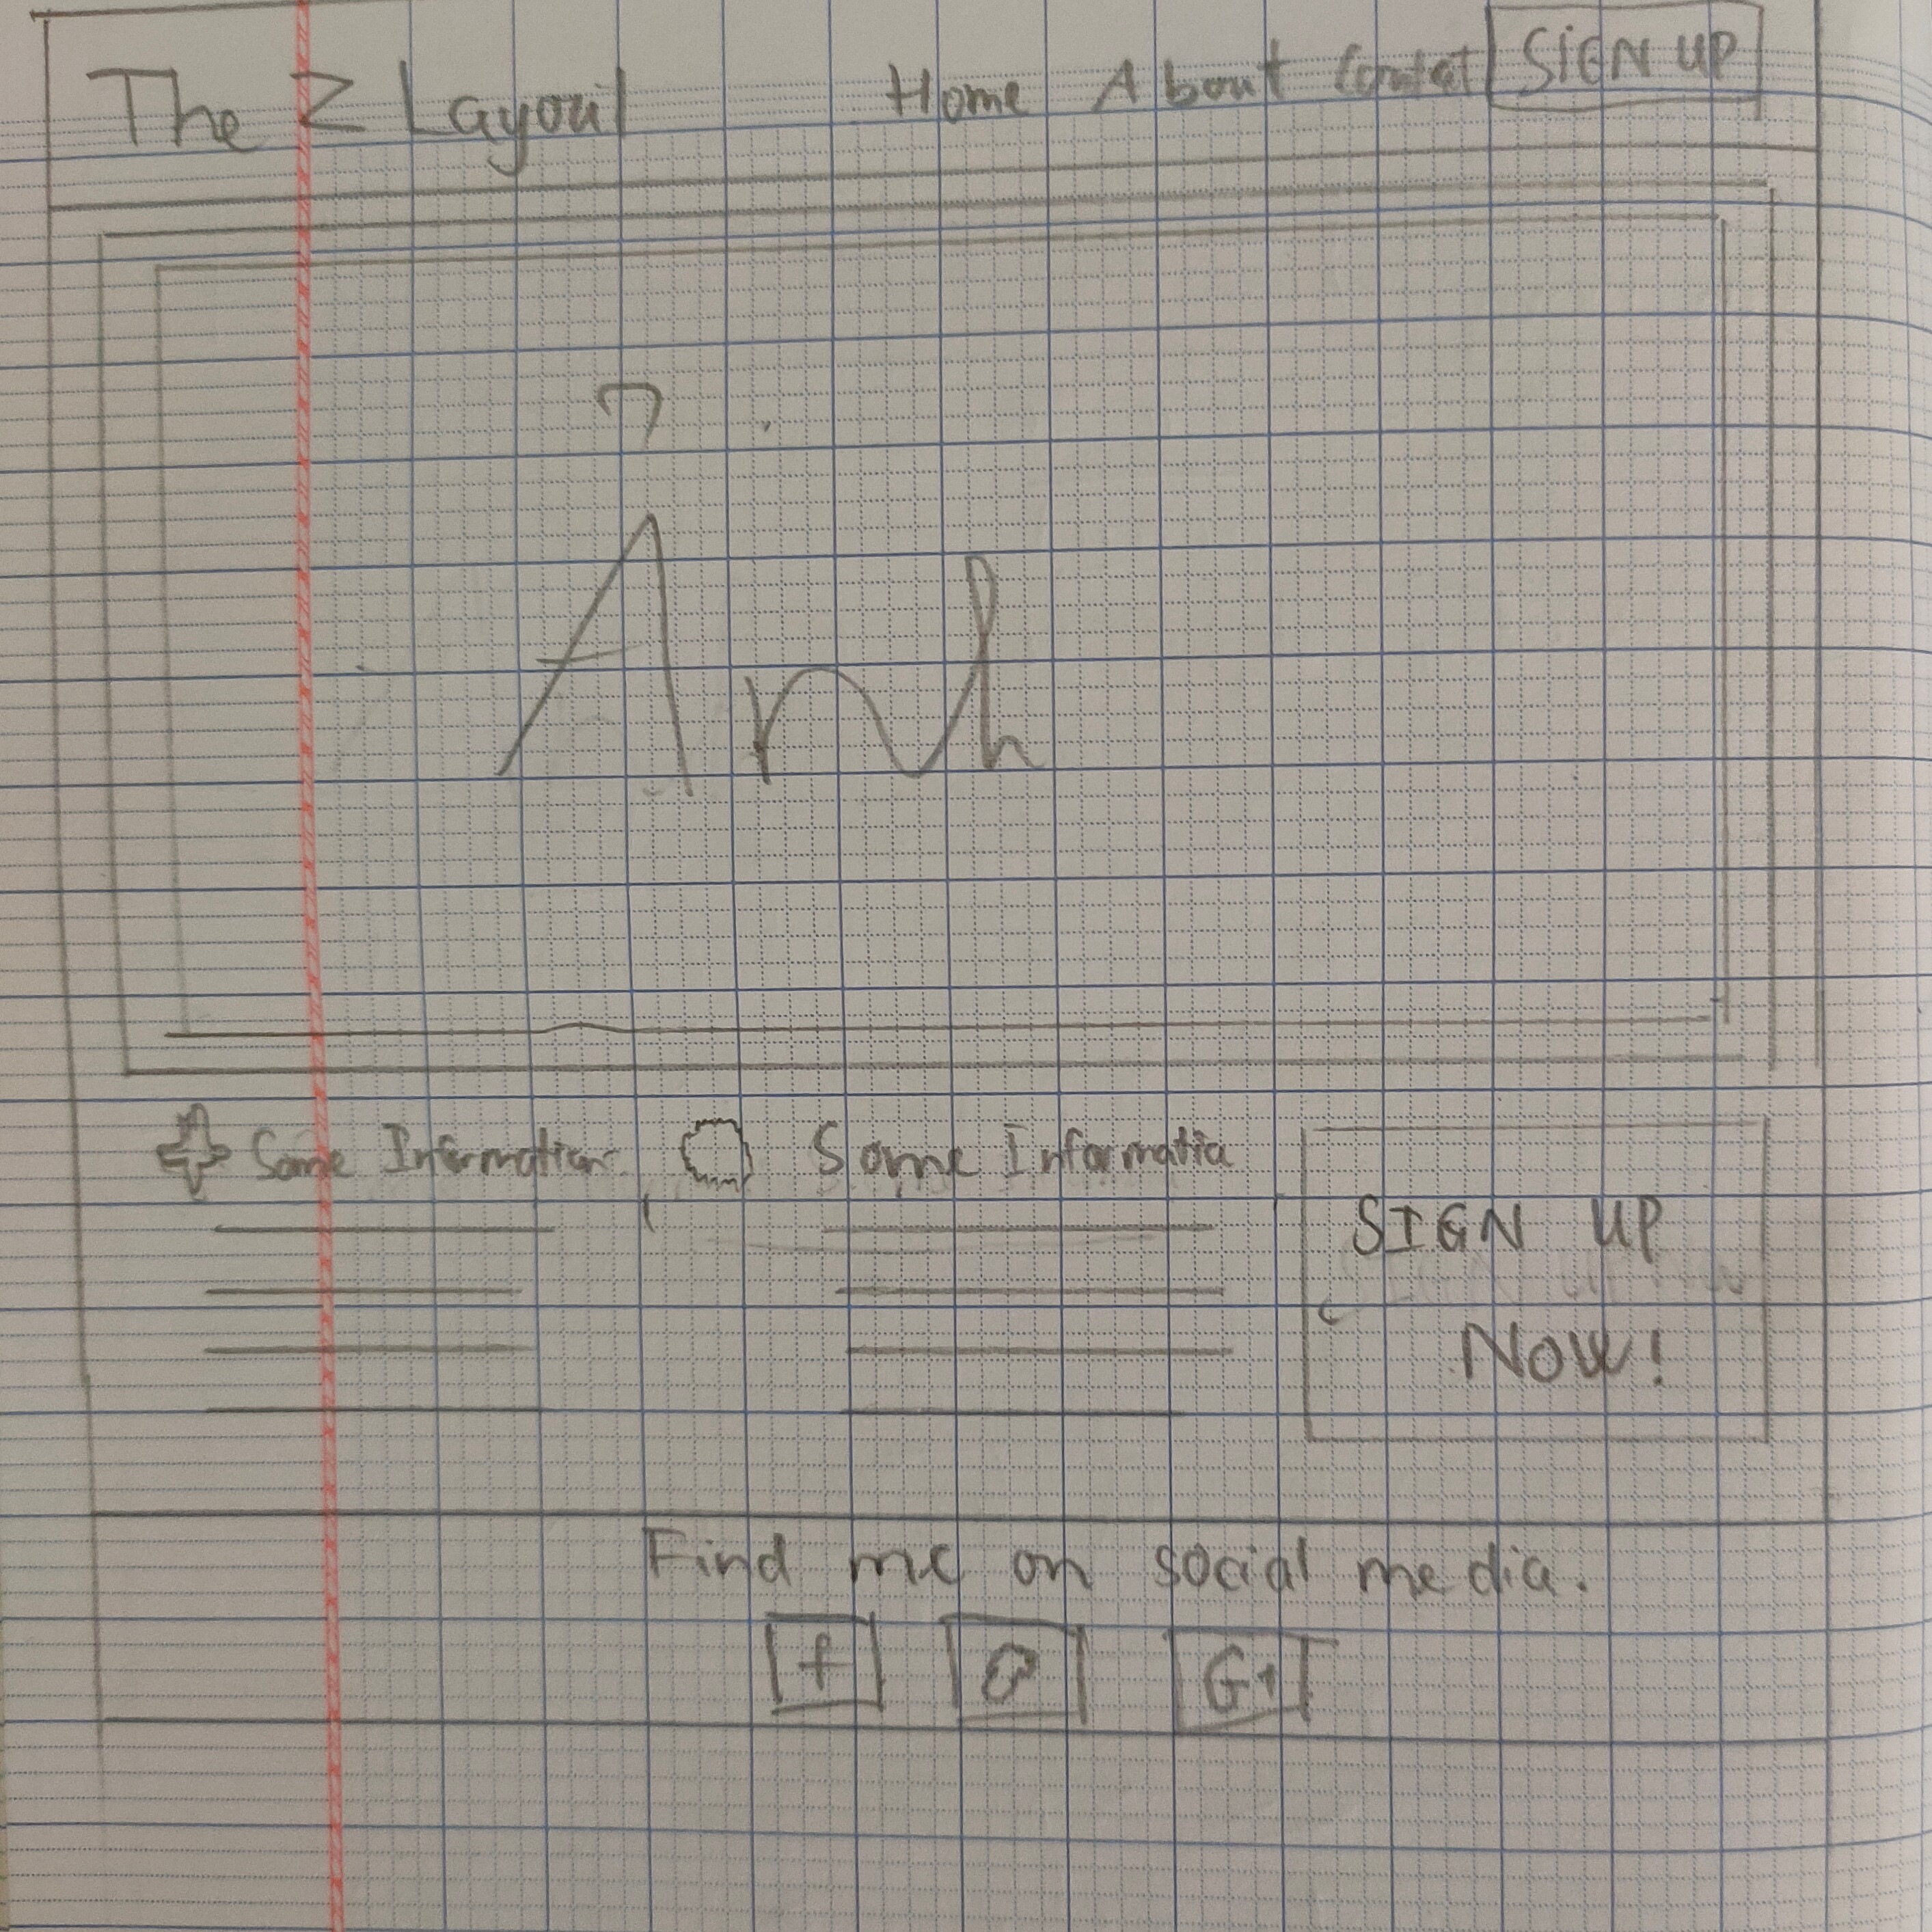 The Z Layout Home About Contat SIGN UP
Ảnh
Some Information Some Informatio
SIGN UP
NOW!
Find me on social media.
f G+